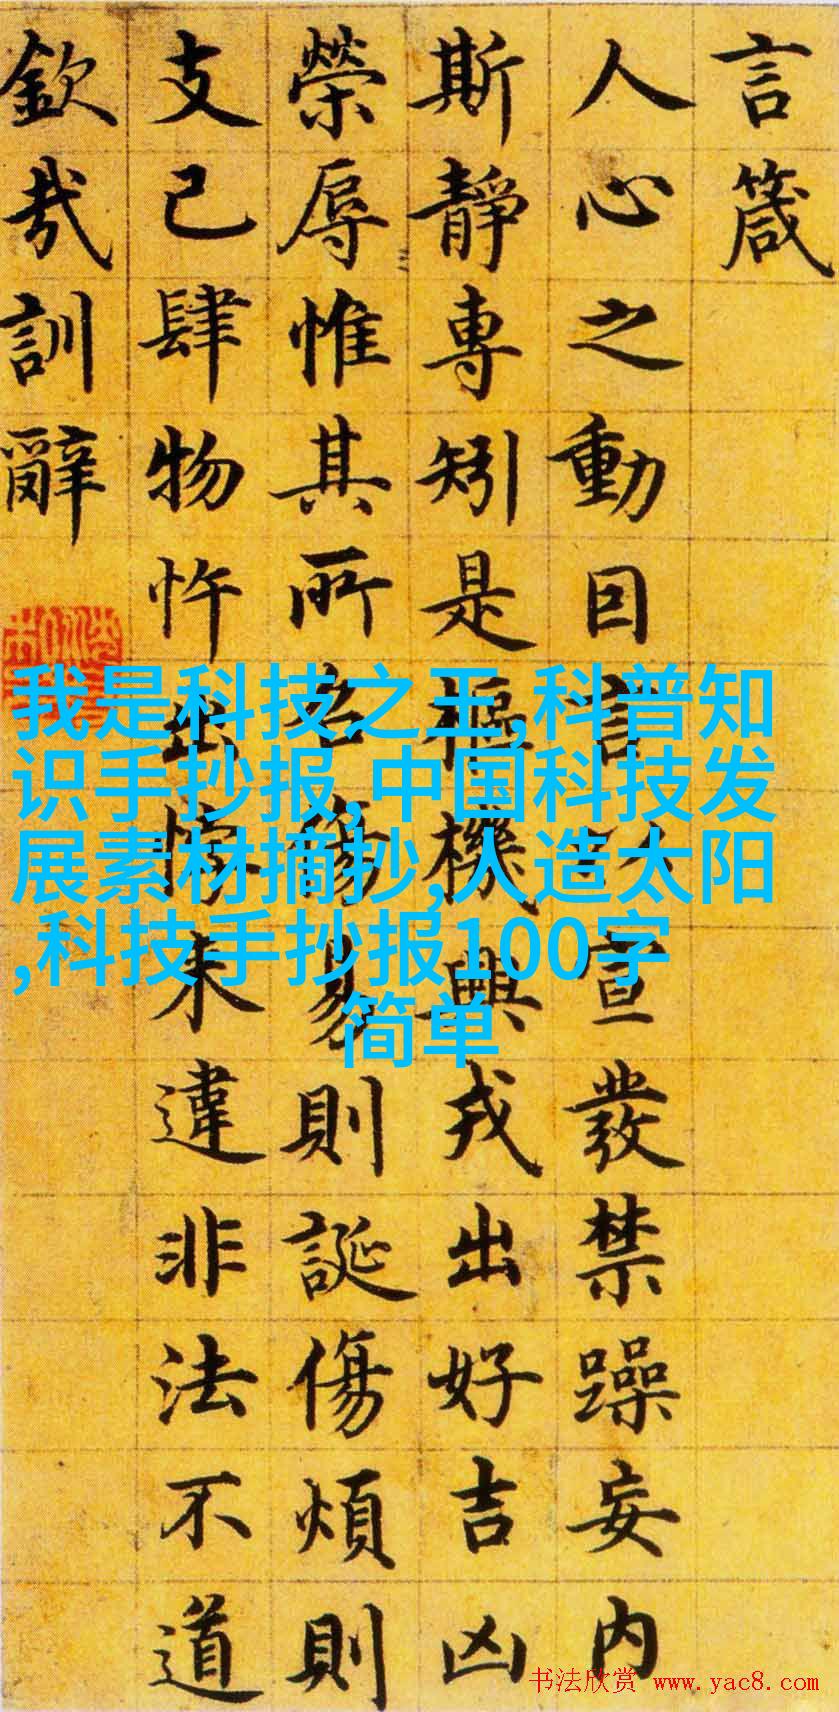 言箴
人心之動因言以宣發禁躁妄内
斯靜專矧是樞機興戎出好吉凶
榮辱惟其所召傷易則誕傷煩則
支己肆物忤出悖来違非法不道
欽哉訓辭
我是科技之王,科普知
识手抄报,中国科技发
展素材摘抄,人造太阳
,科技手抄报100字
简单
书法欣赏 www.yac8.com